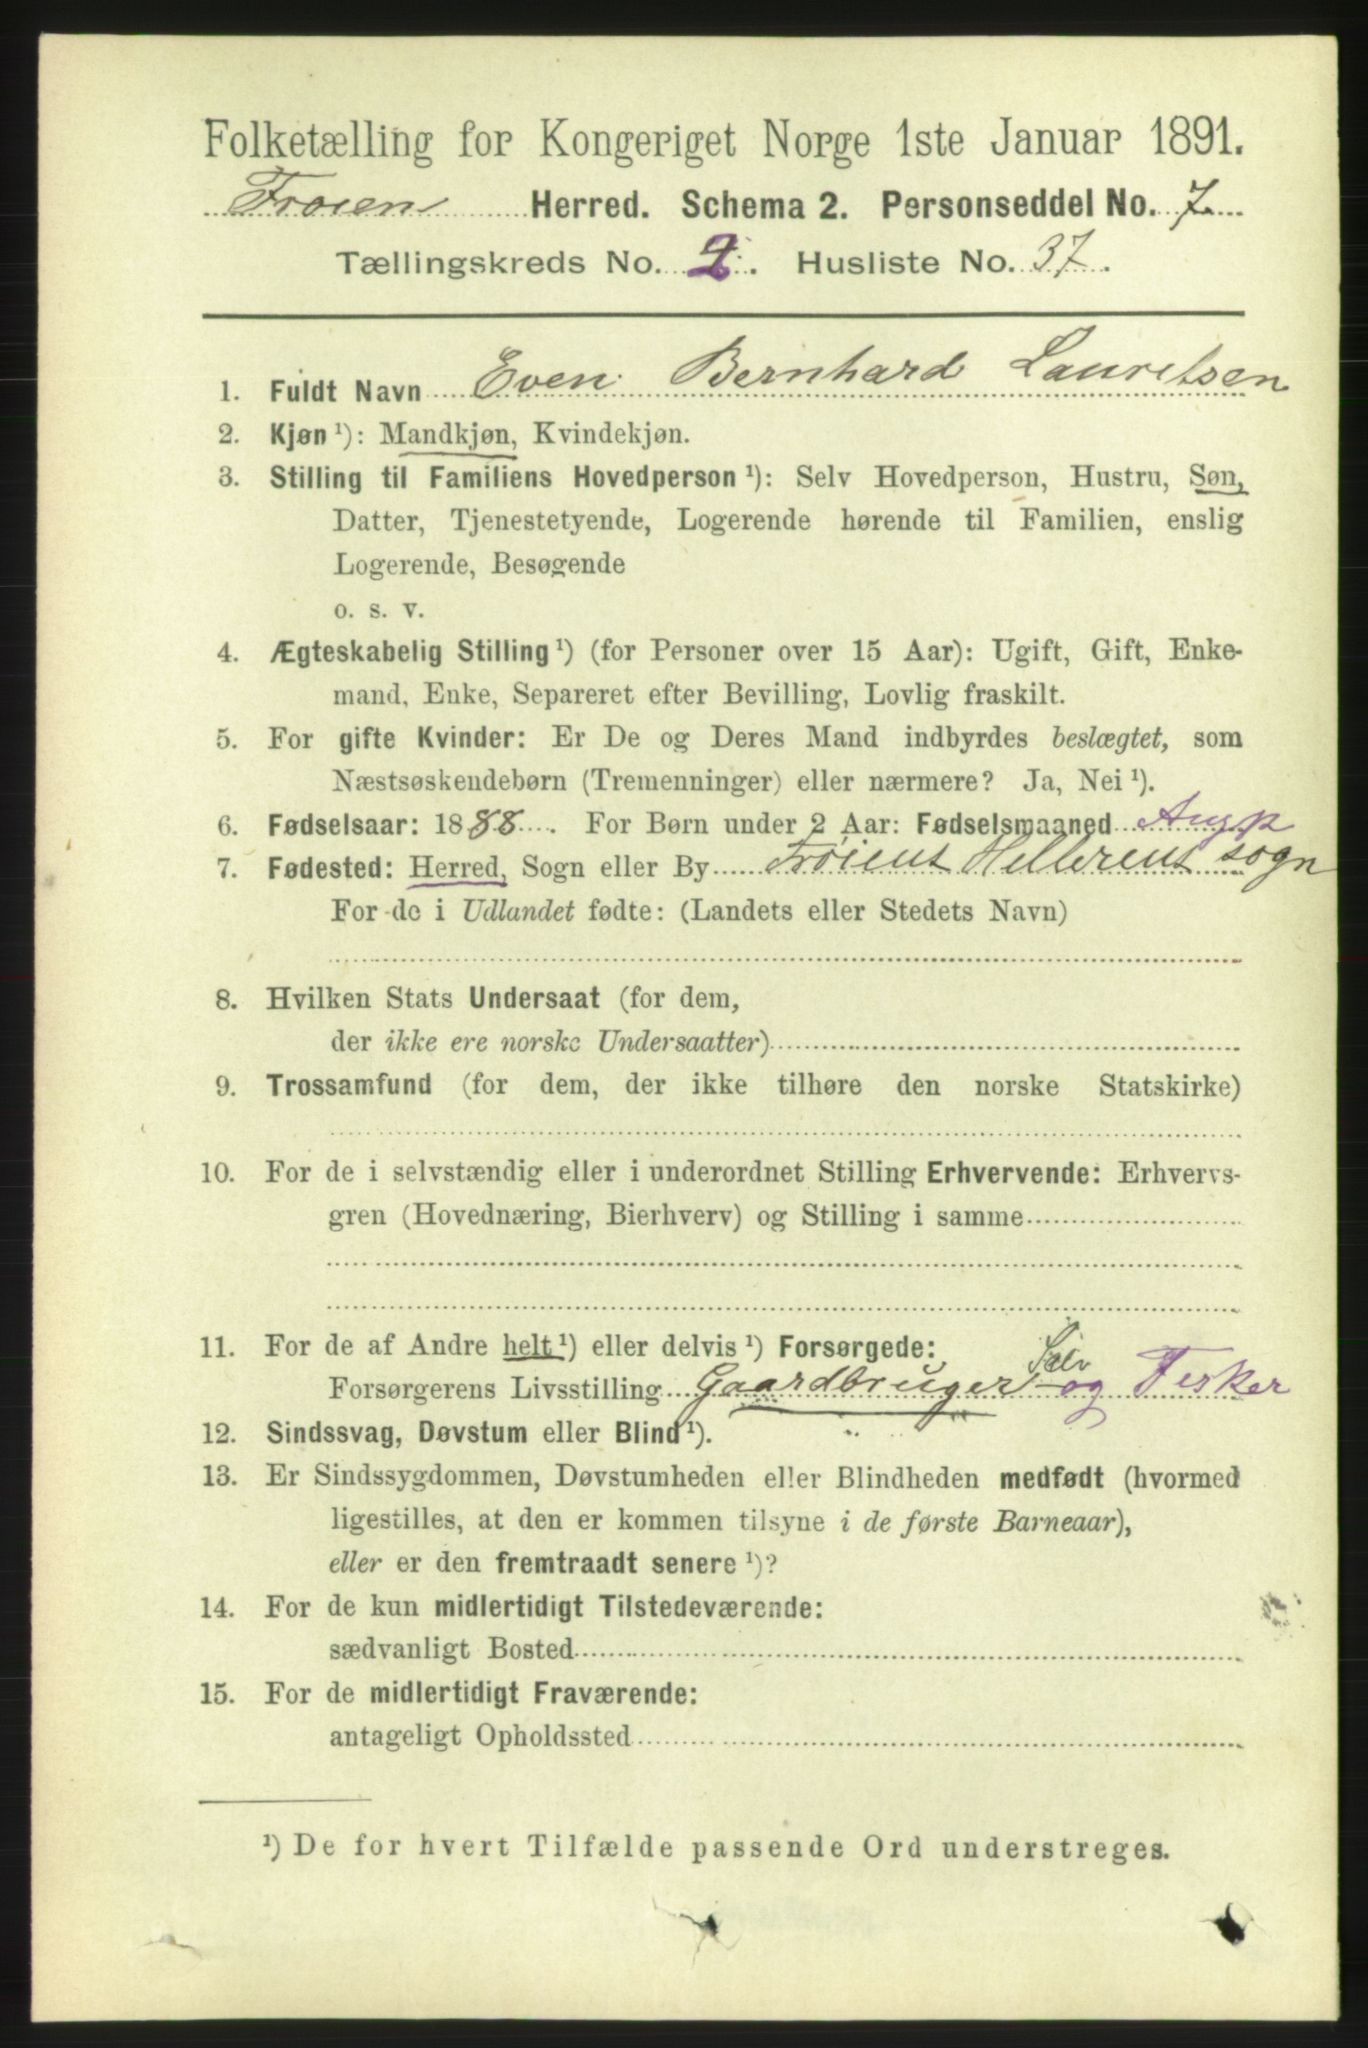 Folketælling for Kongeriget Norge 1ste Januar 1891.
Froien Herred. Schema 2. Personseddel No. 7
Tællingskreds No. 2. Husliste No. 37.
1. Fuldt Navn Even Bernhard Lauritsen
2. Kjøn ¹): Mandkjøn, Kvindekjøn.
3. Stilling til Familiens Hovedperson ¹): Selv Hovedperson, Hustru, Søn,
Datter, Tjenestetyende, Logerende hørende til Familien, enslig
Logerende, Besøgende
o. s. v.
4. Ægteskabelig Stilling ¹) (for Personer over 15 Aar): Ugift, Gift, Enke-
mand, Enke, Separeret efter Bevilling, Lovlig fraskilt.
5. For gifte Kvinder: Er De og Deres Mand indbyrdes beslægtet, som
Næstsøskendebørn (Tremenninger) eller nærmere? Ja, Nei ¹).
6. Fødselsaar: 1888. For Børn under 2 Aar: Fødselsmaaned
7. Fødested: Herred, Sogn eller By Frøiens Hellerens sogn
For de i Udlandet fødte: (Landets eller Stedets Navn)
8. Hvilken Stats Undersaat (for dem,
der ikke ere norske Undersaatter)
9. Trossamfund (for dem, der ikke tilhøre den norske Statskirke)
10. For de i selvstændig eller i underordnet Stilling Erhvervende: Erhvervs-
gren (Hovednæring, Bierhverv) og Stilling i samme
11. For de af Andre helt ¹) eller delvis ¹) Forsørgede:
Forsørgerens Livsstilling Gaardbruger Selv og Fisker
12. Sindssvag, Døvstum eller Blind ¹).
13. Er Sindssygdommen, Døvstumheden eller Blindheden medfødt (hvormed
ligestilles, at den er kommen tilsyne i de første Barneaar),
eller er den fremtraadt senere ¹)?
14. For de kun midlertidigt Tilstedeværende:
sædvanligt Bosted
15. For de midlertidigt Fraværende:
antageligt Opholdssted
¹) De for hvert Tilfælde passende Ord understreges.